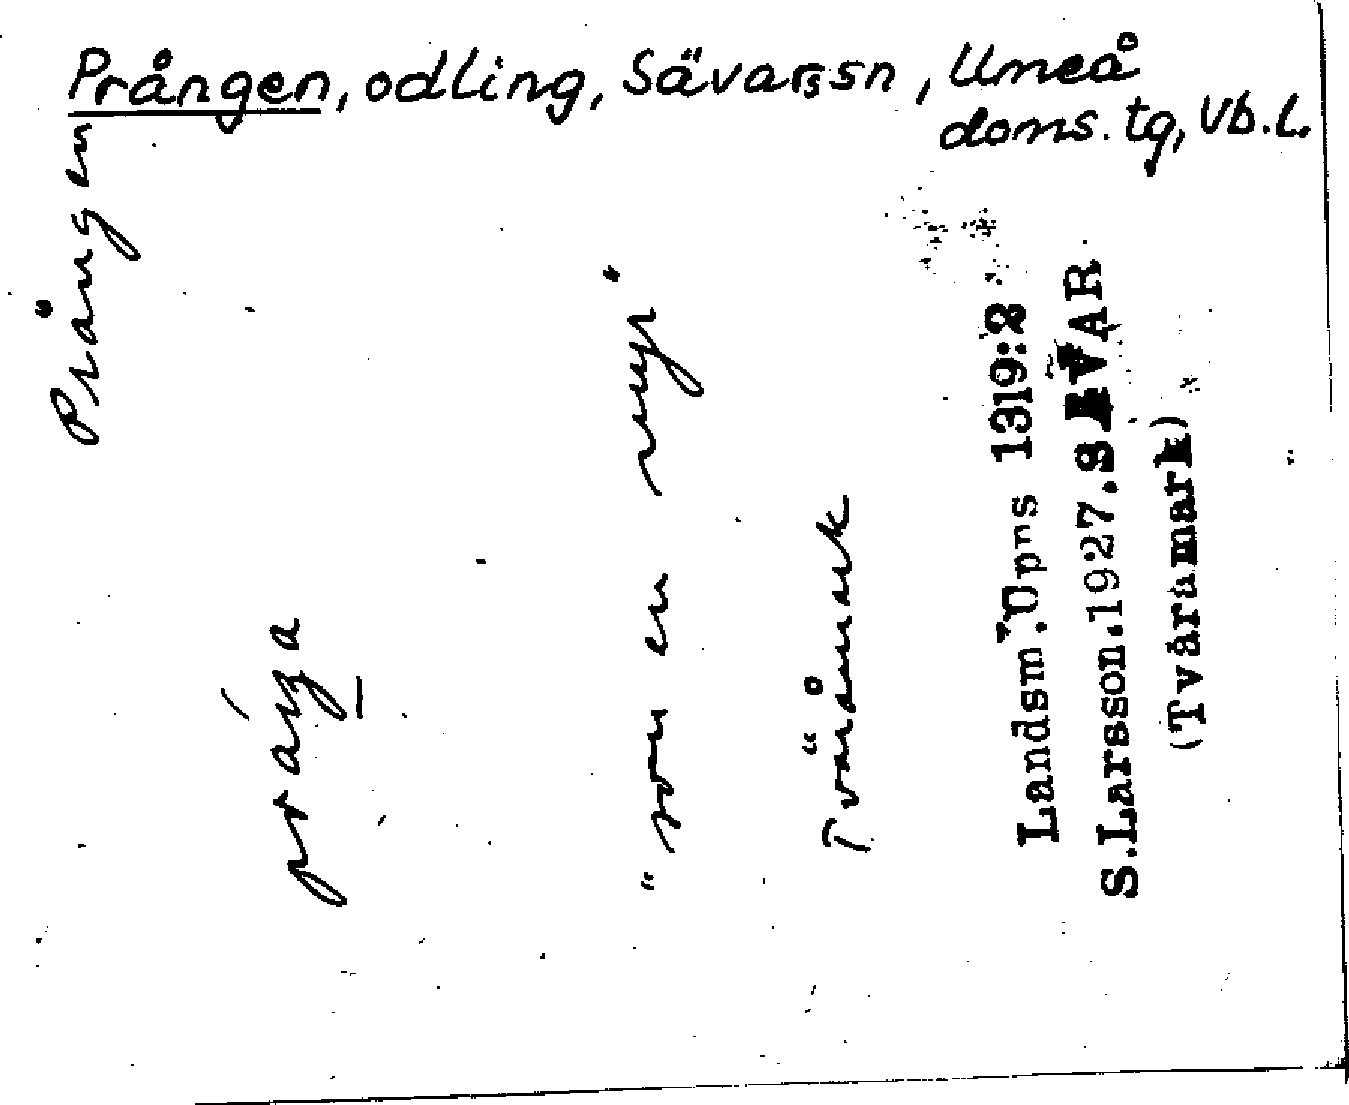 Prången, odling, Sävars sn, Umeå
doms. tg, Vb. l.
Prången
"som en
Tväråmark
Landsm. Upps 1319:2
S.Larsson.1927.SÄVAR
(Tväråmark)